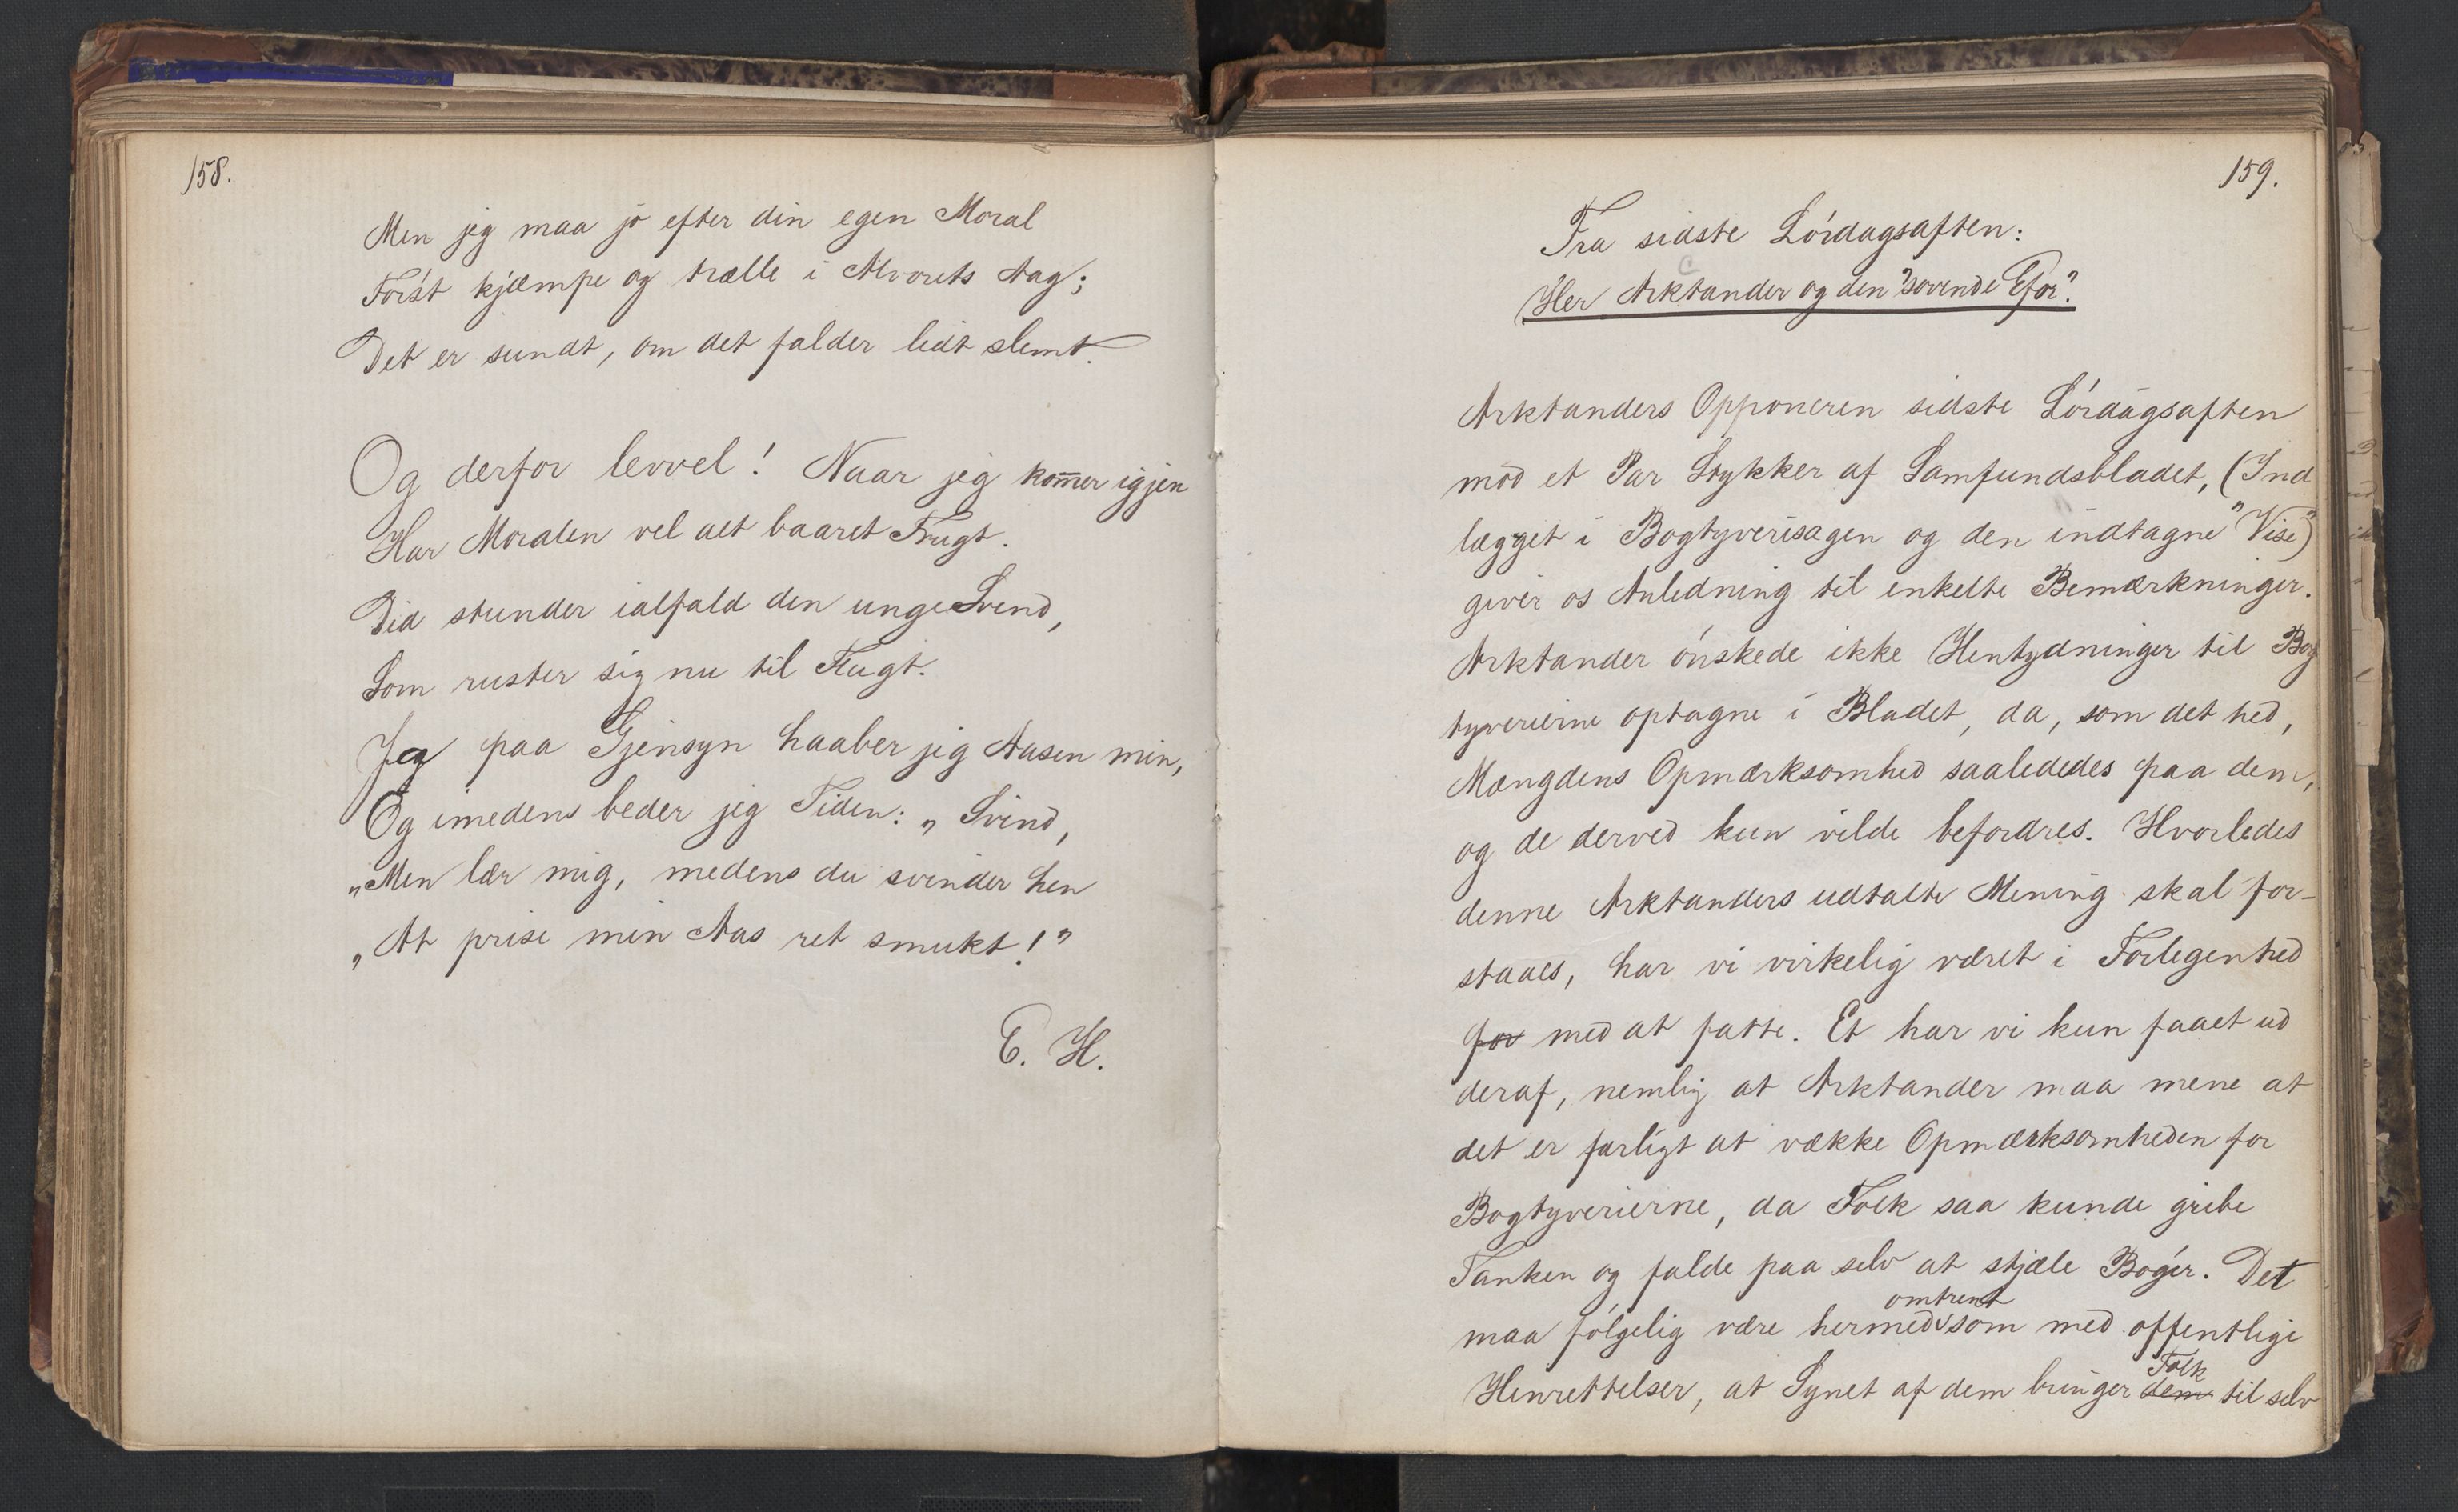 158.
Men jeg maa jo efter din egen Moral
Først kjæmpe og trælle i Alvorets Aag;
Det er sundt, om det falder lidt slemt.
Og derfor levvel! Naar jeg kom̅er igjen
Har Moralen vel alt baaret Frugt.
Did stunder ialfald den unge Svend,
Som ruster sig nu til Flugt.
Ja paa Gjensyn haaber jeg Aasen min,
Og imedens beder jeg Tiden: „Svind,
„Men lær mig, medens du svinder hen
„At prise min Aas ret smukt!"
E. H.
159.
Fra sidste Lørdagsaften:
Her Arktander og den "sovende Efor".
Arktanders Opponeren sidste Lørdagsaften
mod et Par Stykker af Samfundsbladet, (Ind
lægget i Bogtyverisagen og den indtagne "Vise")
giver os Anledning til enkelte Bemærkninger.
Arktander ønskede ikke Hentydninger til Bog
tyverierne optagne i Bladet, da, som det hed,
Mængdens Opmærksomhed saaledes paa dem,
og de derved kun vilde befordres. Hvorledes
denne Arktanders udtalte Mening skal for-
staaes, har vi virkelig været i Forlegenhed
for med at fatte. Et har vi kun faaet ud
deraf, nemlig at Arktander maa mene at
det er farligt at vække Opmærksomheden for
Bogtyverierne, da Folk saa kunde gribe
Tanken og falde paa selv at stjæle Bøger. Det
omtrent
maa følgelig være hermed som med offentlige
Folk
Henrettelser, at Synet af dem bringer dem til selv